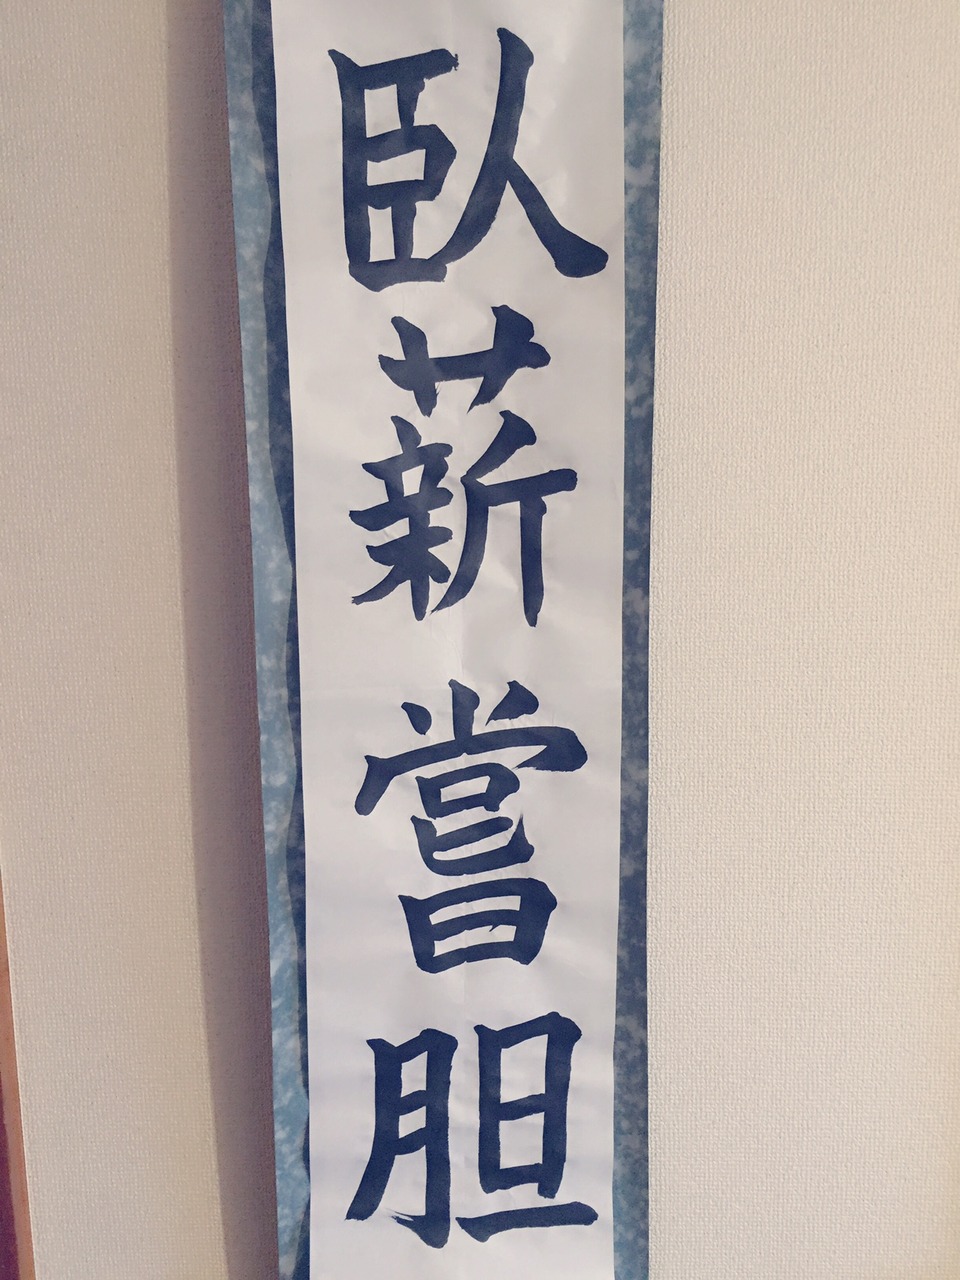 臥薪嘗胆